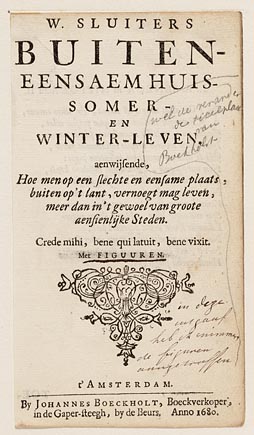 W. SLUITERS
BUITEN-
EENSAEM HUIS-
SOMER-
EN
WINTER-LEVEN,
aenwijsende,
Hoe men op een slechte en eensame plaats,
buiten op't lant, vernoegt mag leven,
meer dan in't gewoel van groote
aensienlijke Steden.
Crede mihi, bene qui latuit, bene vixit.
Met FIGUUREN.
van
Boekholt
in deze
de figuren
t'AMSTERDAM.
By JOHANNES BOECKHOLT, Boeckverkoper,
in de Gaper-steegh, by de Beurs. Anno 1680.